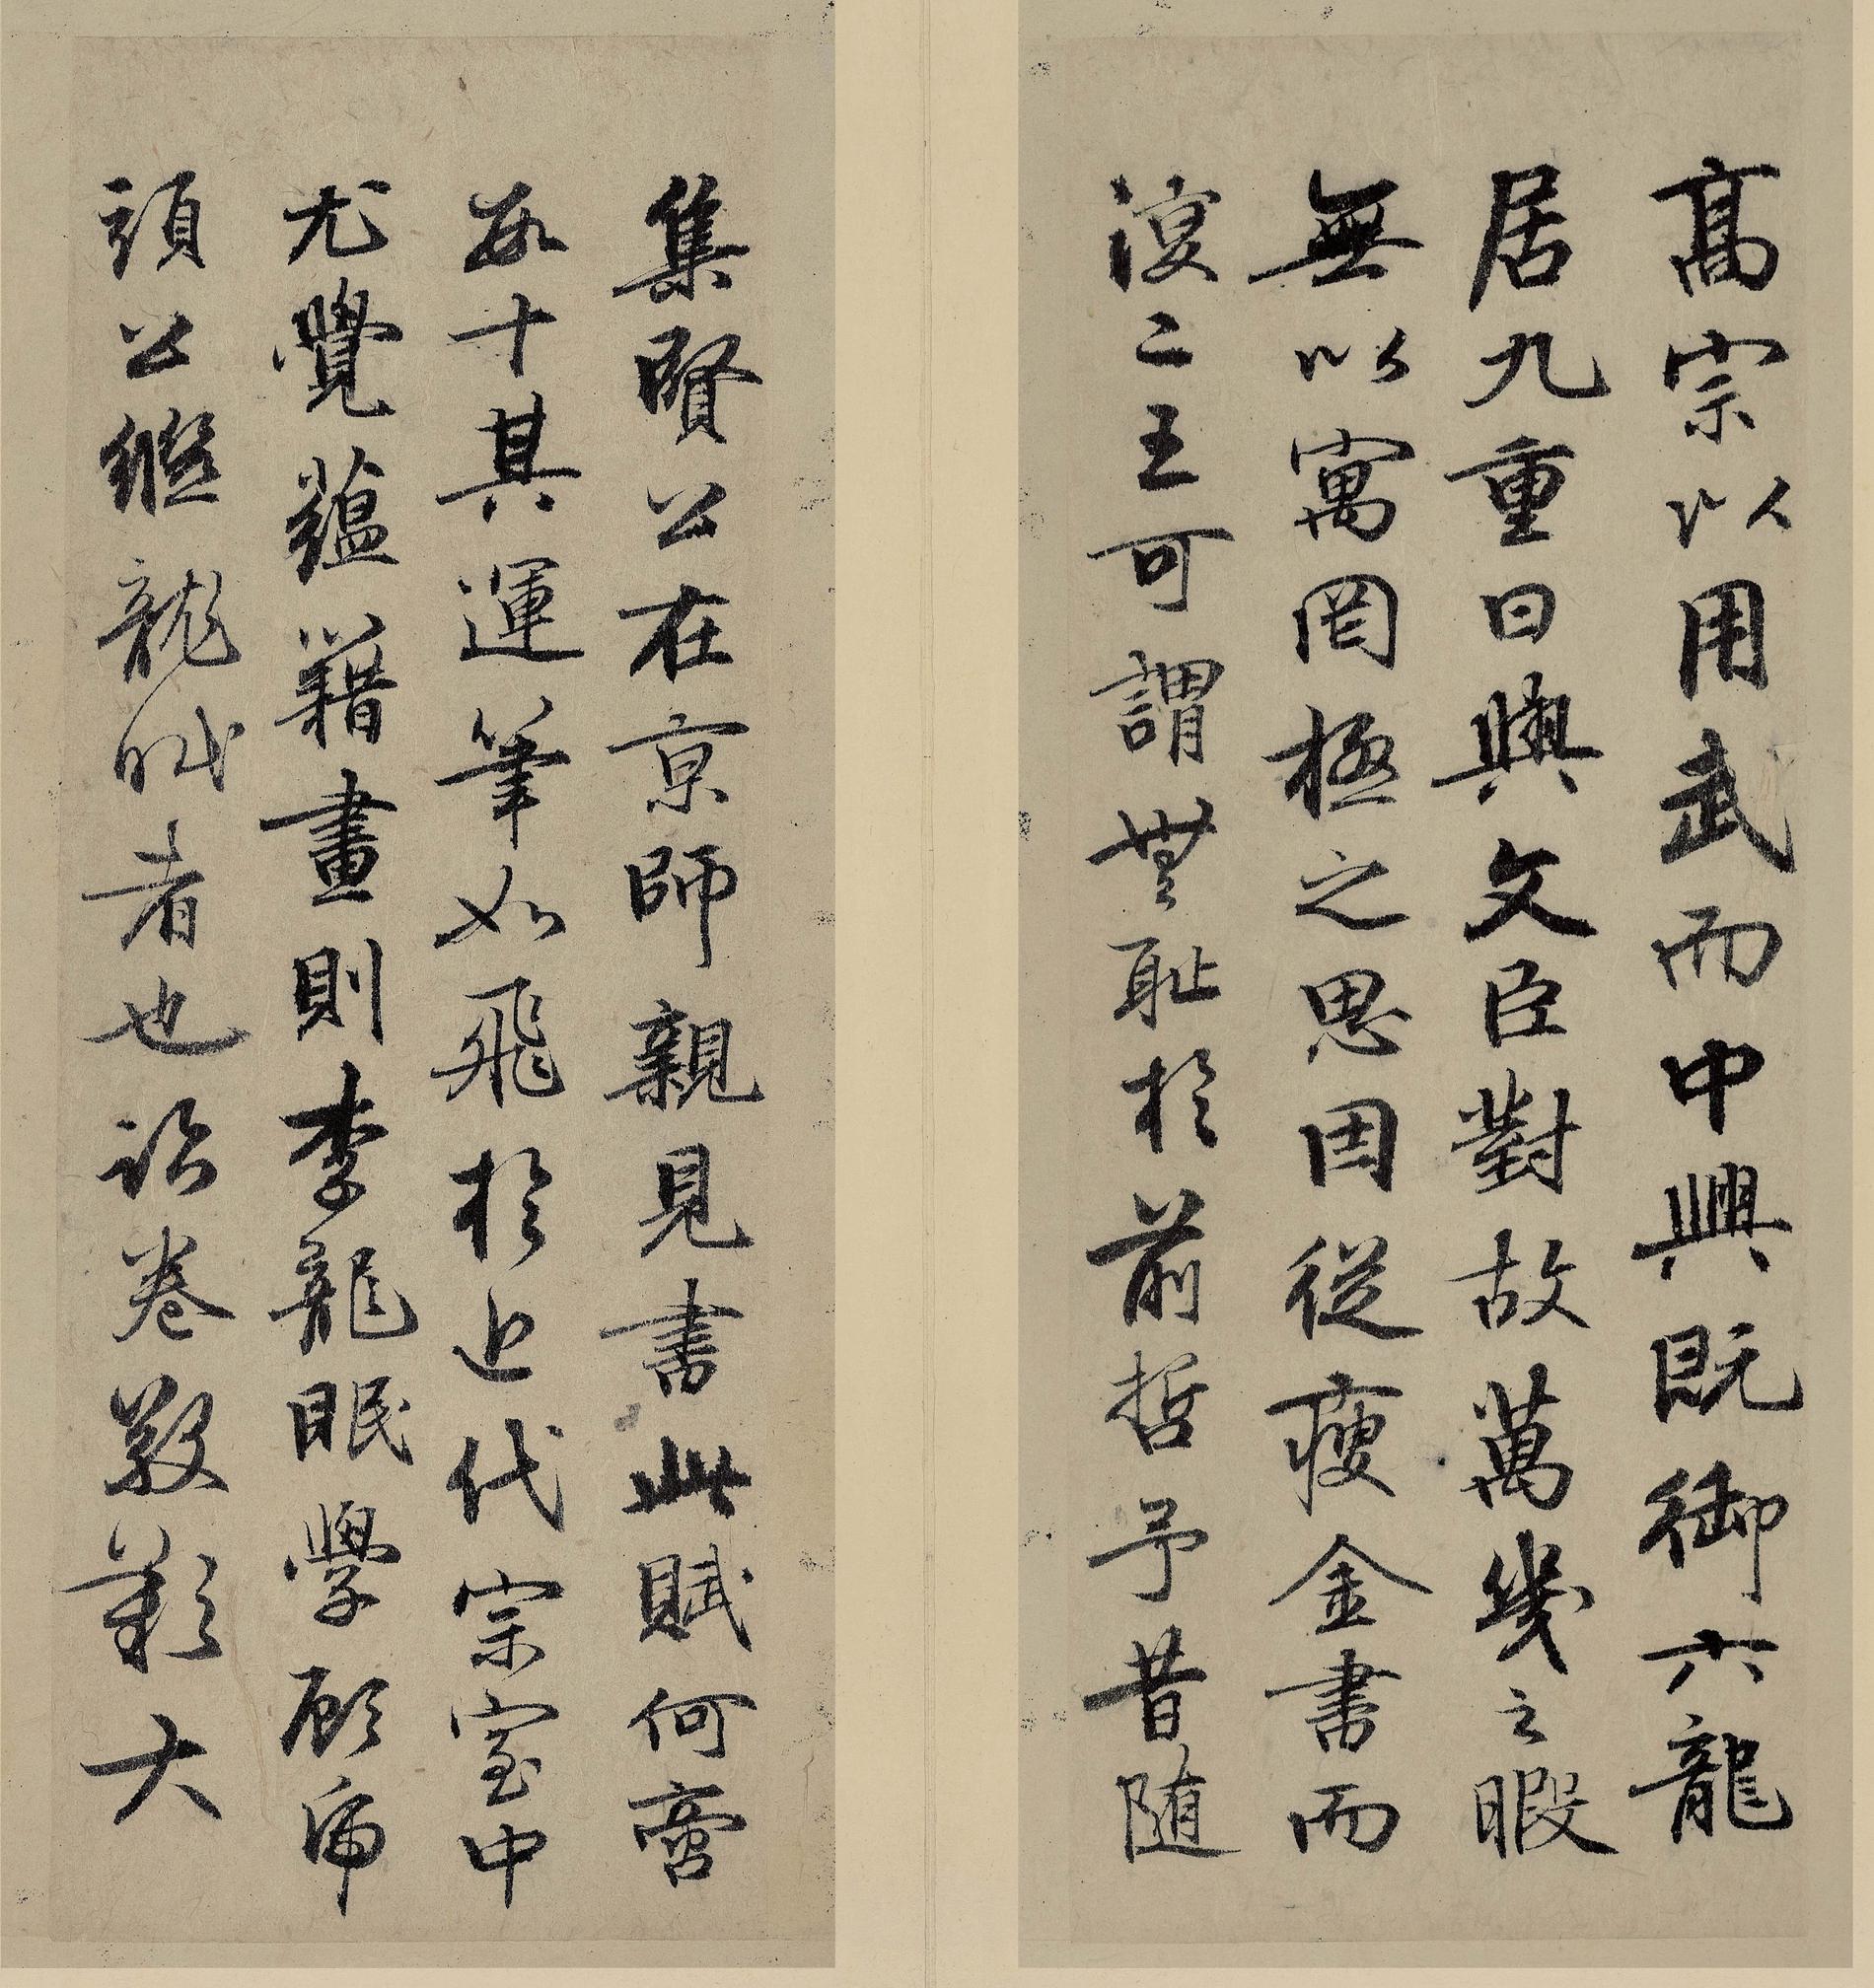 高宗以用武而中興既御六龍
居九重日與文臣對故萬幾之暇
無以寓罔極之思因從瘦金書而
復二王可謂無恥於前哲予昔隨
集賢公在京師親見書此賦何啻
數十其運筆如飛於近代宗室中
尤覺蘊藉畫則李龍眠學顧虎
頭公繼龍眠者也詒卷敬題大